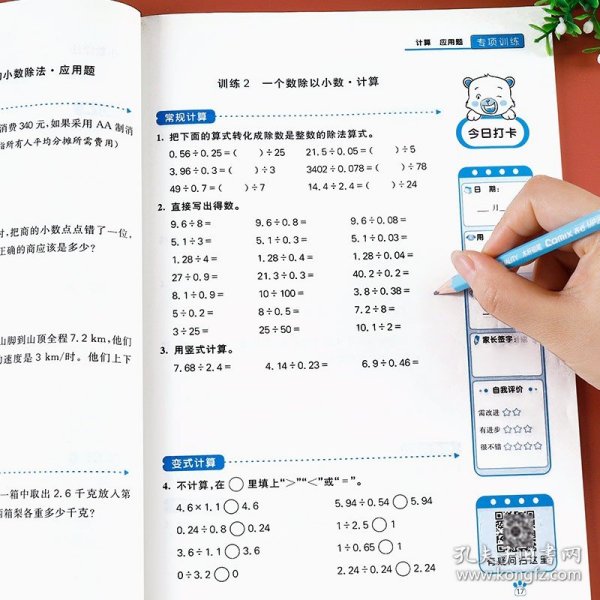 的小数除法·应用题
消费340元,如果采用 AA 制消
指所有人平均分摊所需费用)
时,把商的小数点点错了一位,
正确的商应该是多少?
山脚到山顶全程7.2 km,他们
的速度是3 km/时。他们上下
一箱中取出2.6千克放入第
两箱梨各重多少千克?
计算 应用题 专项训练
训练2 一个数除以小数·计算
常规计算
1. 把下面的算式转化成除数是整数的除法算式。
0.56÷0.25=( )÷25 21.5÷0.05=( )÷5
3.96÷0.3=( )÷3 3402÷0.078=( )÷78
49÷0.7=( )÷7 14.4÷2.4=( )÷24
2. 直接写出得数。
9.6÷8= 9.6÷0.8= 9.6÷0.08=
5.1÷3= 5.1÷0.3= 5.1÷0.03=
1.28÷4= 1.28÷0.4= 1.28÷0.04=
27÷0.9= 21.3÷0.3= 40.2÷0.2=
8.1÷0.9= 10÷100= 3.8÷0.38=
5÷0.2= 8÷0.5= 7.2÷8=
3÷25= 25÷50= 10.1÷2=
3. 用竖式计算。
7.68÷2.4= 4.14÷0.23= 6.9÷0.46=
变式计算
4. 不计算,在○里填上“>”“<”或“=”。
4.6×1.1○4.6 5.94÷0.54○5.94
0.24÷0.8○0.24 1÷2.5○1
3.6÷1.1○3.6 1÷0.65○1
0÷3.2○0 2.24÷0.24○2.24
今日打卡
日 期:
月
用
家长签字
自我评价
需改进 ☆☆
有进步 ☆☆☆
很不错 ☆☆☆☆
Comix
孔夫子旧书网
www.kongfz.com
17